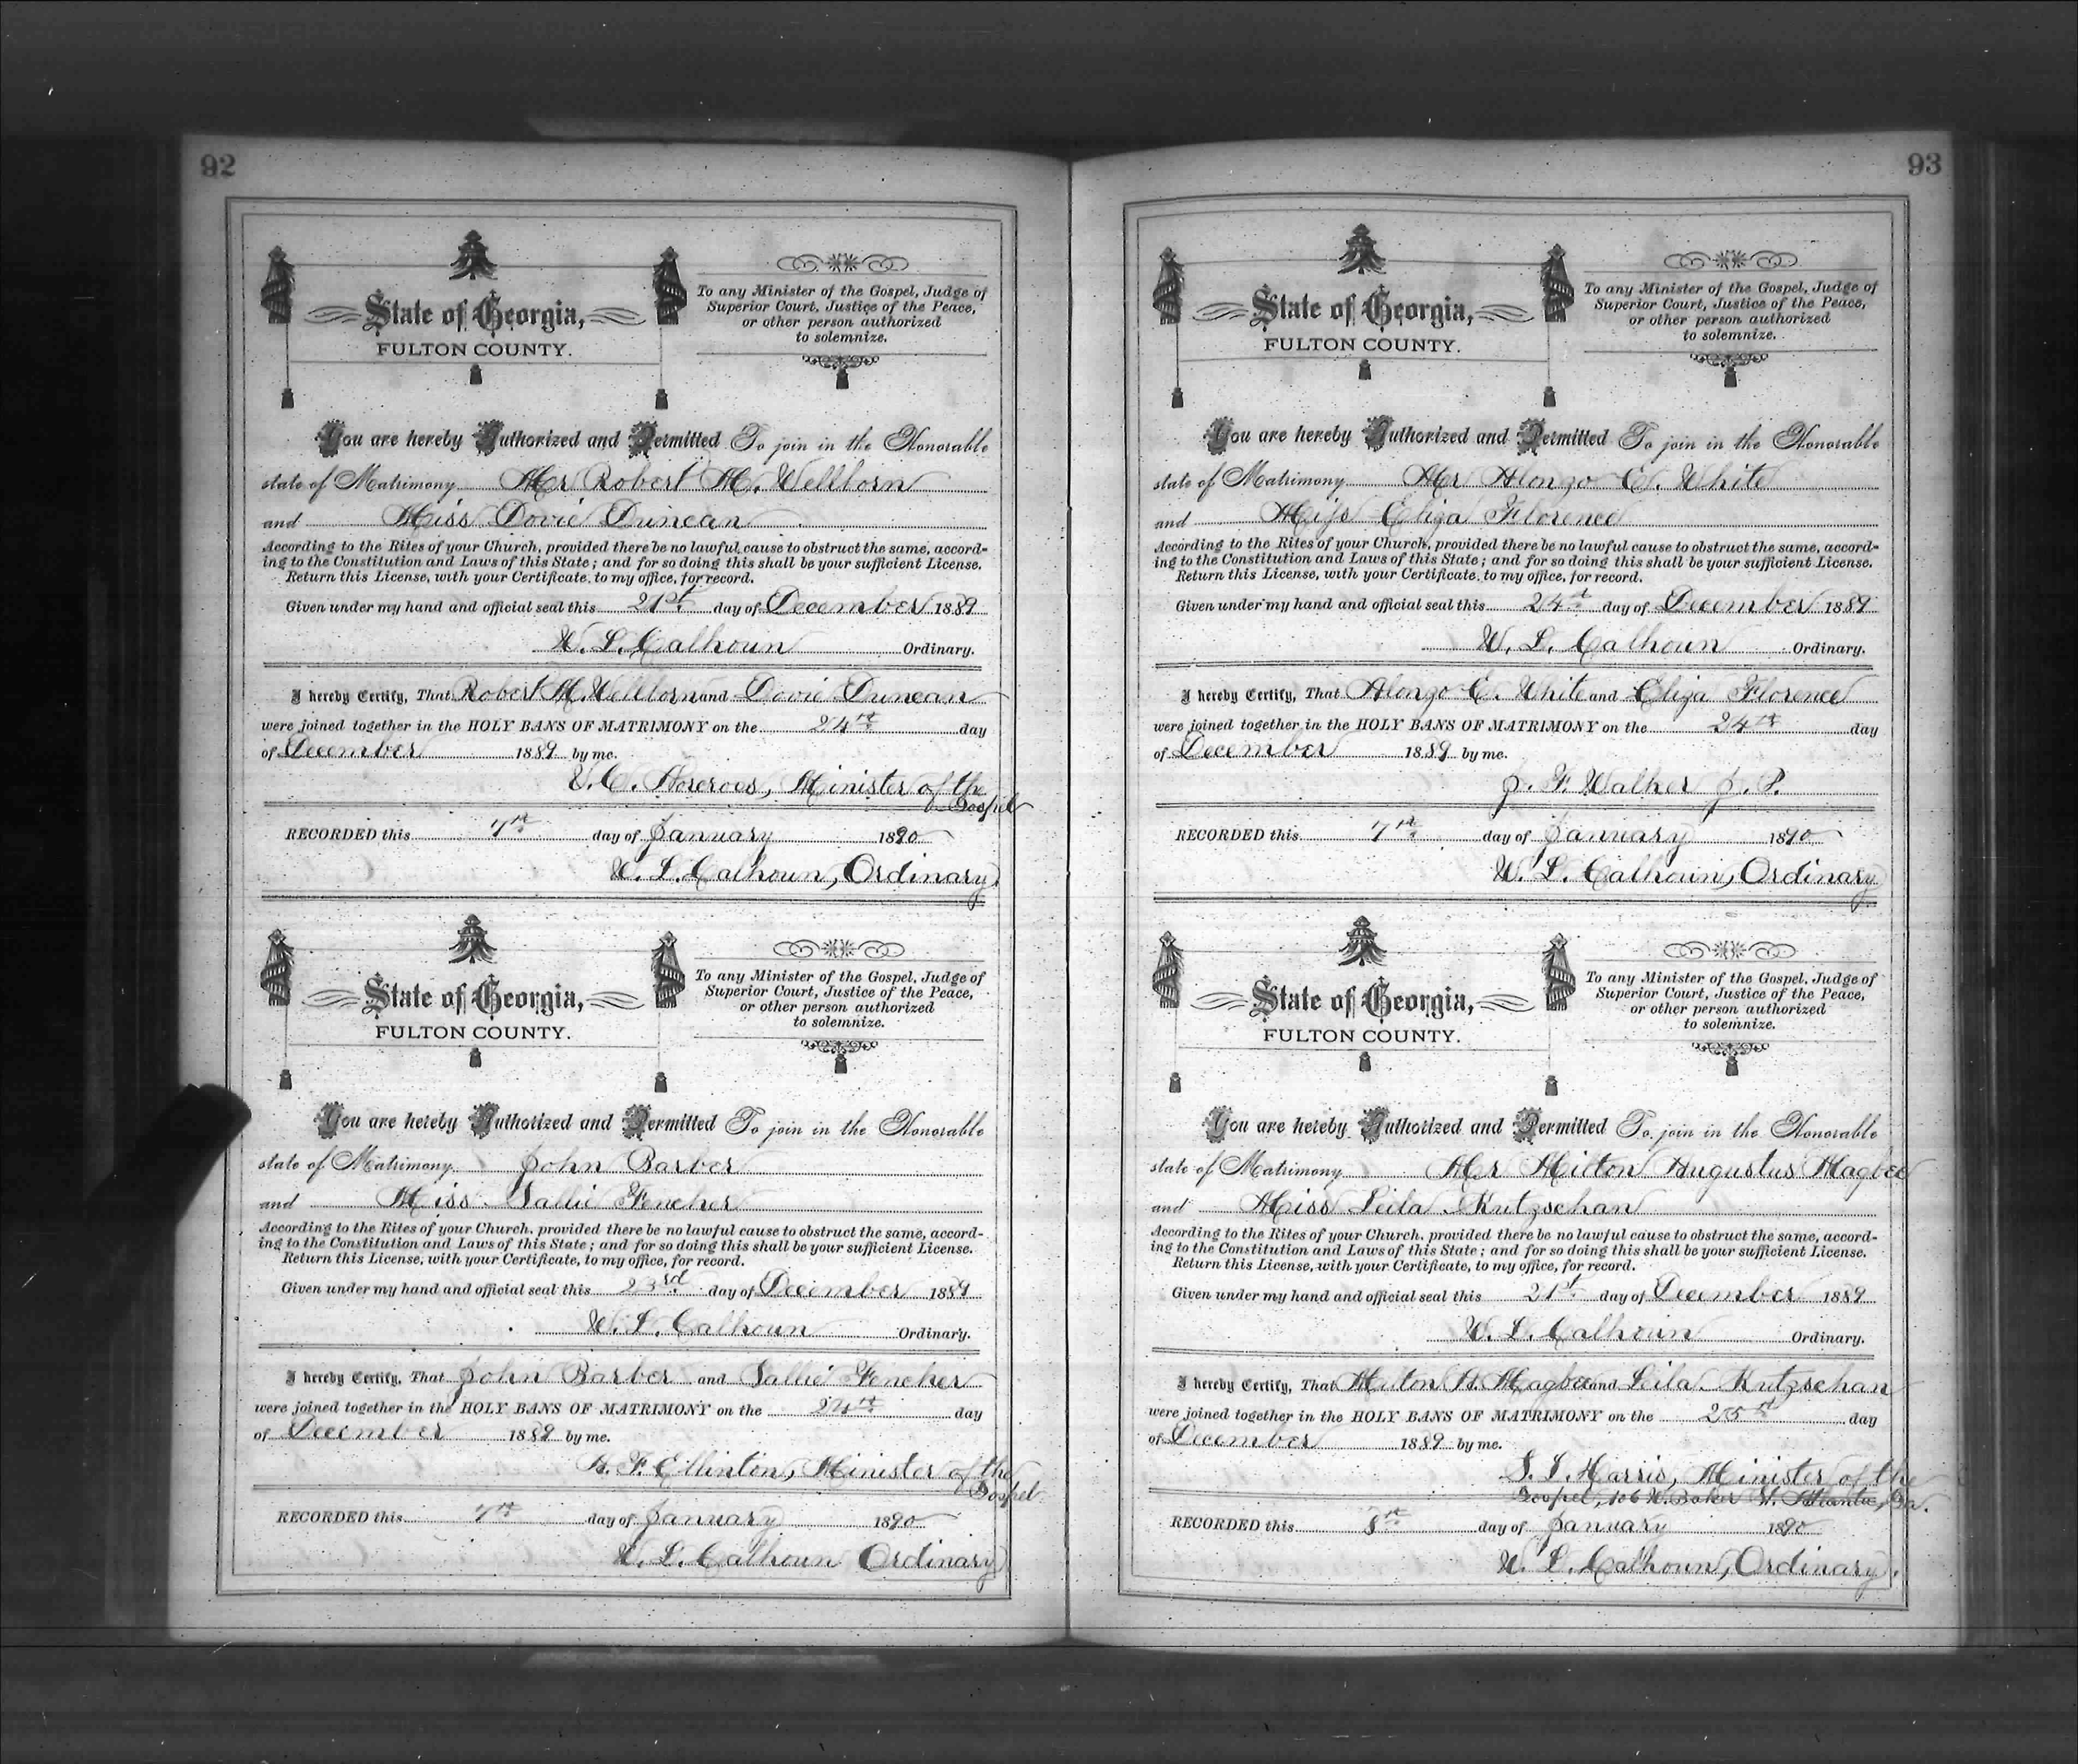 92
State of Georgia,
FULTON COUNTY.
To any Minister of the Gospel, Judge of
Superior Court, Justice of the Peace,
or other person authorized
to solemnize.
You are hereby Authorized and Permitted To join in the Honorable
state of Matrimony Mr Robert M. Wellborn
and Miss Dovie Duncan
According to the Rites of your Church, provided there be no lawful cause to obstruct the same, accord-
ing to the Constitution and Laws of this State; and for so doing this shall be your sufficient License.
Return this License, with your Certificate, to my office, for record.
Given under my hand and official seal this 21st day of December 1889
W. L. Calhoun Ordinary.
I hereby Certify, That Robert M. Wellborn and Dovie Duncan
were joined together in the HOLY BANS OF MATRIMONY on the 24th day
of December 1889 by me.
V. C. Norcross, Minister of the
Gospel
RECORDED this 7th day of January 1890
W. L. Calhoun, Ordinary
State of Georgia,
FULTON COUNTY.
To any Minister of the Gospel, Judge of
Superior Court, Justice of the Peace,
or other person authorized
to solemnize.
You are hereby Authorized and Permitted To join in the Honorable
state of Matrimony John Barber
and Miss Sallie Fencher
According to the Rites of your Church, provided there be no lawful cause to obstruct the same, accord-
ing to the Constitution and Laws of this State; and for so doing this shall be your sufficient License.
Return this License, with your Certificate, to my office, for record.
Given under my hand and official seal this 23rd day of December 1889
W. L. Calhoun Ordinary.
I hereby Certify, That John Barber and Sallie Fencher
were joined together in the HOLY BANS OF MATRIMONY on the 24th day
of December 1889 by me.
H. F. Ellinton, Minister of the
Gospel
RECORDED this 7th day of January 1890
W. L. Calhoun Ordinary
93
State of Georgia,
FULTON COUNTY.
To any Minister of the Gospel, Judge of
Superior Court, Justice of the Peace,
or other person authorized
to solemnize.
You are hereby Authorized and Permitted To join in the Honorable
state of Matrimony Mr Alonzo E. White
and Miss Eliza Florence
According to the Rites of your Church, provided there be no lawful cause to obstruct the same, accord-
ing to the Constitution and Laws of this State; and for so doing this shall be your sufficient License.
Return this License, with your Certificate, to my office, for record.
Given under my hand and official seal this 24th day of December 1889
W. L. Calhoun Ordinary.
I hereby Certify, That Alonzo E. White and Eliza Florence
were joined together in the HOLY BANS OF MATRIMONY on the 24th day
of December 1889 by me.
J. F. Walker J. P.
RECORDED this 7th day of January 1890
W. L. Calhoun, Ordinary
State of Georgia,
FULTON COUNTY.
To any Minister of the Gospel, Judge of
Superior Court, Justice of the Peace,
or other person authorized
to solemnize.
You are hereby Authorized and Permitted To join in the Honorable
state of Matrimony Mr Milton Augustus Magbee
and Miss Leila Kutzschan
According to the Rites of your Church, provided there be no lawful cause to obstruct the same, accord-
ing to the Constitution and Laws of this State; and for so doing this shall be your sufficient License.
Return this License, with your Certificate, to my office, for record.
Given under my hand and official seal this 21st day of December 1889
W. L. Calhoun Ordinary.
I hereby Certify, That Milton A. Magbee and Leila Kutzschan
were joined together in the HOLY BANS OF MATRIMONY on the 25th day
of December 1889 by me.
S. L. Harris, Minister of the
Gospel, 106 W. Baker St. Atlanta, Ga.
RECORDED this 8th day of January 1890
W. L. Calhoun, Ordinary.